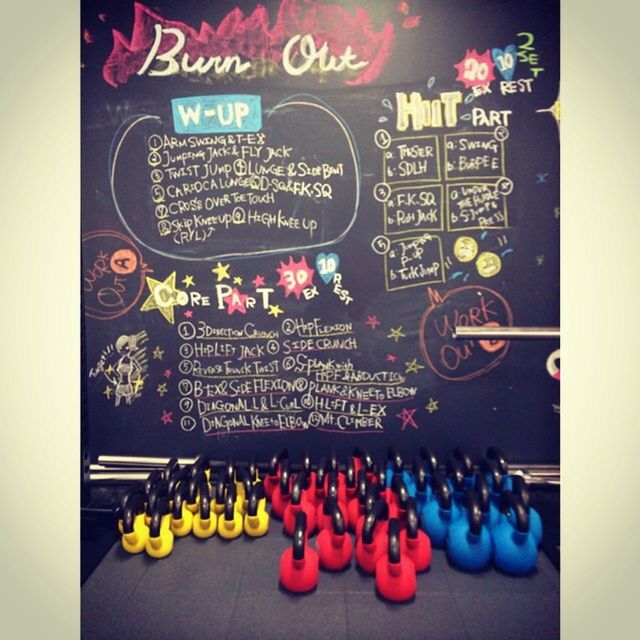 Burn Out
W-UP
① ARM SWING & T-EX
② JUMPING JACK & FLY JACK
③ TWIST JUMP ④ LUNGE & SIDE BENT
⑤ CARIOCA LUNGE ⑥ D-SQ & F.K.SQ
⑦ CROSS OVER TOE TOUCH
⑧ SKIP KNEE UP ⑨ HIGH KNEE UP
(R/L)
20 10 2 SET
EX REST
HIIT PART
①
a.
b. SDLH
②
a. SWING
b. BURPEE
③
a. F.K.SQ
b. JACK
④
a. UNDER THE
b. PRESS
⑤
a. JUMPING P-UP
b. TUCK JUMP
WORK OUT A
CORE PART
30 10
EX REST
① 3 DIRECTION CRUNCH ② HIP FLEXION
③ HIP LIFT JACK ④ SIDE CRUNCH
⑤ REVERSE TRUNK TWIST ⑥ S-PLANK with
& ABDUCTION
⑦ B-EX & SIDE FLEXION ⑧ PLANK & KNEE TO ELBOW
⑨ DIAGONAL L & L-CURL ⑩ H-LIFT & L-EX
⑪ DIAGONAL KNEE TO ELBOW ⑫ MT. CLIMBER
WORK OUT B